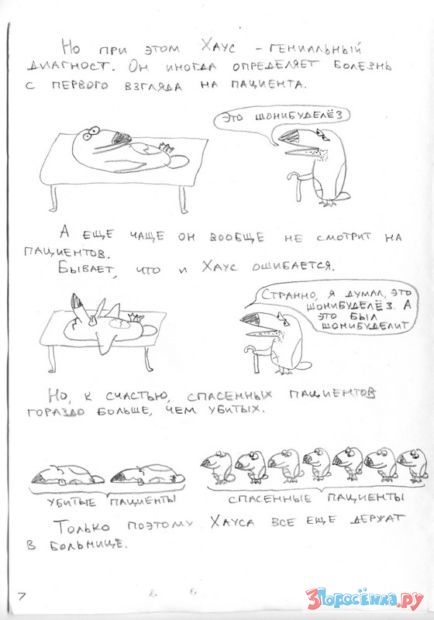 Но при этом Хаус – гениальный
диагност. Он иногда определяет болезнь
с первого взгляда на пациента.
Это шонибуделёз
А еще чаще он вообще не смотрит на
пациентов.
Бывает, что и Хаус ошибается.
Странно, я думал, это
шонибуделёз. А
это был
шонибуделит
Но, к счастью, спасенных пациентов
гораздо больше, чем убитых.
убитые пациенты
спасенные пациенты
Только поэтому Хауса все еще держат
в больнице.
7
3Поросёнка.ру